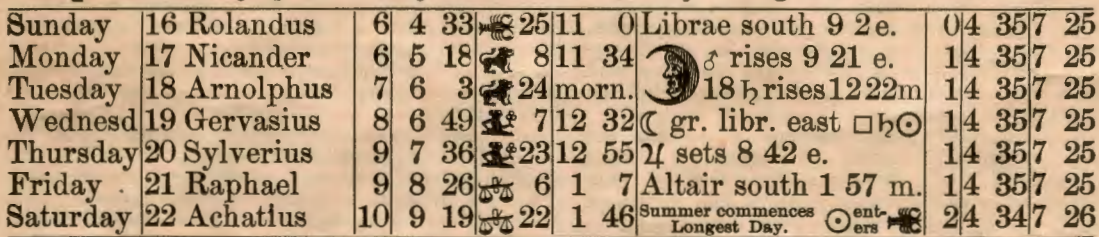 Sunday 16 Rolandus 6 4 33 25 11 0 Librae south 9 2 e. 0 4 35 7 25
Monday 17 Nicander 6 5 18 8 11 34 ♂ rises 9 21 e. 1 4 35 7 25
Tuesday 18 Arnolphus 7 6 3 24 morn. 18 ♄ rises 12 22 m 1 4 35 7 25
Wednesd 19 Gervasius 8 6 49 7 12 32 ☾ gr. libr. east □ ♄ ☉ 1 4 35 7 25
Thursday 20 Sylverius 9 7 36 23 12 55 ♃ sets 8 42 e. 1 4 35 7 25
Friday 21 Raphael 9 8 26 ♎ 6 1 7 Altair south 1 57 m. 1 4 35 7 25
Saturday 22 Achatius 10 9 19 ♎ 22 1 46 Summer commences Longest Day. ☉ enters 2 4 34 7 26